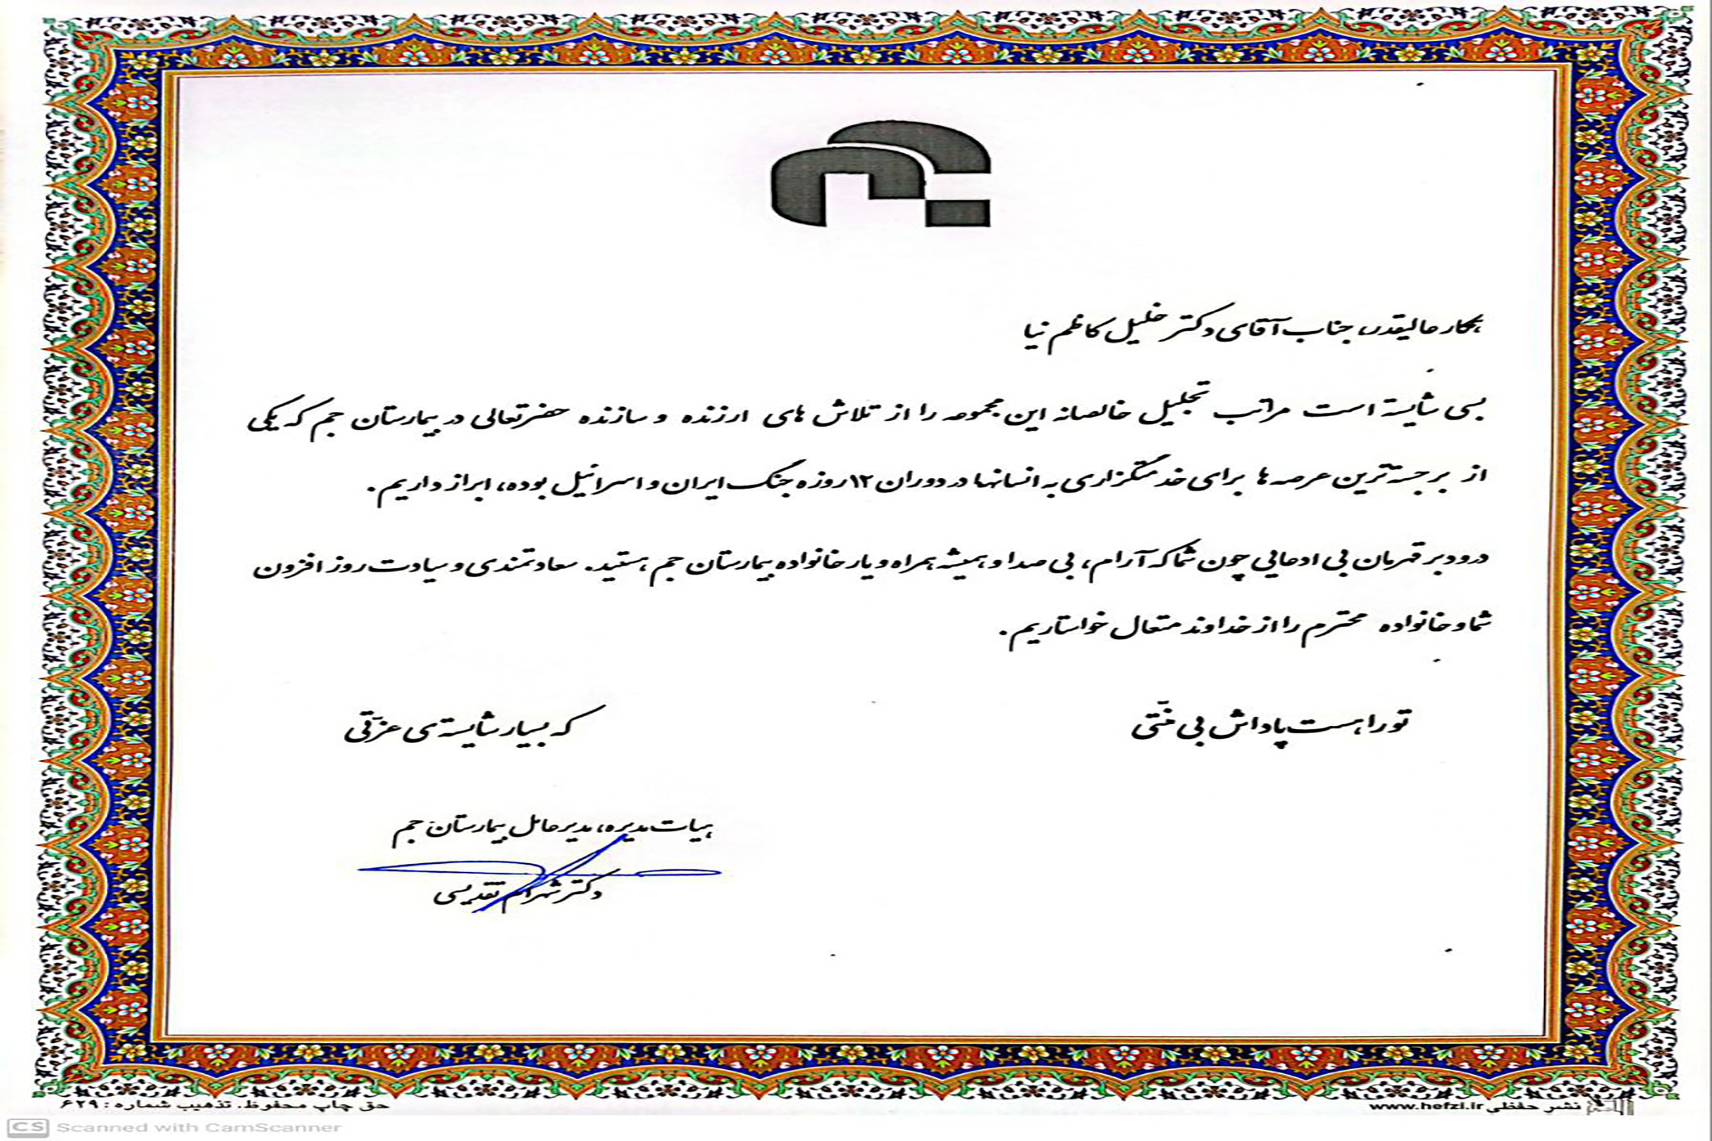 همکار عالیقدر، جناب آقای دکتر خلیل کاظم نیا
بسی شایسته است مراتب تجلیل خالصانه این مجموعه را از تلاش های ارزنده و سازنده حضرتعالی در بیمارستان جم که یکی
از برجسته‌ترین عرصه ها برای خدمتگزاری به انسانها در دوران ۱۲ روزه جنگ ایران و اسرائیل بوده، ابراز داریم.
درود بر قهرمان بی ادعایی چون شما که آرام، بی صدا و همیشه همراه و یار خانواده بیمارستان جم هستید. سعادتمندی و سیادت روز افزون
شما و خانواده محترم را از خداوند متعال خواستاریم.
تو را هست پاداش بی منّتی که بسیار شایسته‌ی عزّتی
هیات مدیره، مدیرعامل بیمارستان جم
دکتر شهرام تقدیسی
حق چاپ محفوظ. تذهیب شماره: ۶۲۹
نشر حفظی www.hefzi.ir
CS Scanned with CamScanner